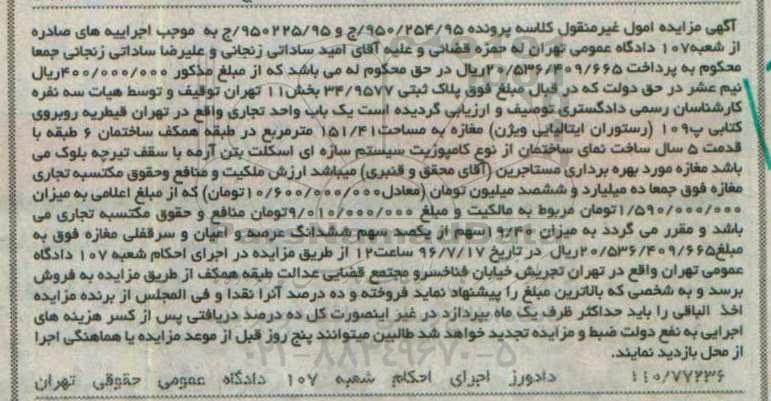 آگهی مزایده اموال غیرمنقول کلاسه پرونده ۹۵۰/۲۵۴/۹۵/ج و ۹۵۰۲۲۵/۹۵/ج به موجب اجراییه های صادره
از شعبه۱۰۷ دادگاه عمومی تهران له حمزه قضائی و علیه آقای امید ساداتی زنجانی و علیرضا ساداتی زنجانی جمعا
محکوم به پرداخت ۲۰/۵۳۶/۴۰۹/۶۶۵ریال در حق محکوم له می باشد که از مبلغ مذکور ۴۰۰/۰۰۰/۰۰۰ریال
نیم عشر در حق دولت که در قبال مبلغ فوق پلاک ثبتی ۳۴/۹۵۷۷ بخش۱۱ تهران توقیف و توسط هیات سه نفره
کارشناسان رسمی دادگستری توصیف و ارزیابی گردیده است یک باب واحد تجاری واقع در تهران قیطریه روبروی
کتابی پ۱۰۹ (رستوران ایتالیایی ویژن) مغازه به مساحت۱۵۱/۴۱ مترمربع در طبقه همکف ساختمان ۶ طبقه با
قدمت ۵ سال ساخت نمای ساختمان از نوع کامپوزیت سیستم سازه ای اسکلت بتن آرمه با سقف تیرچه بلوک می
باشد مغازه مورد بهره برداری مستاجرین (آقای محقق و قنبری) میباشد ارزش ملکیت و منافع وحقوق مکتسبه تجاری
مغازه فوق جمعا ده میلیارد و ششصد میلیون تومان (معادل۱۰/۶۰۰/۰۰۰/۰۰۰تومان) که از مبلغ اعلامی به میزان
۱/۵۹۰/۰۰۰/۰۰۰تومان مربوط به مالکیت و مبلغ ۹/۰۱۰/۰۰۰/۰۰۰تومان منافع و حقوق مکتسبه تجاری می
باشد و مقرر می گردد به میزان ۱۹/۴۰سهم از یکصد سهم ششدانگ عرصه و اعیان و سرقفلی مغازه فوق به
مبلغ۲۰/۵۳۶/۴۰۹/۶۶۵ریال در تاریخ ۹۶/۷/۱۷ ساعت۱۲ از طریق مزایده در اجرای احکام شعبه ۱۰۷ دادگاه
عمومی تهران واقع در تهران تجریش خیابان فناخسرو مجتمع قضایی عدالت طبقه همکف از طریق مزایده به فروش
برسد و به شخصی که بالاترین مبلغ را پیشنهاد نماید فروخته و ده درصد آنرا نقدا و فی المجلس از برنده مزایده
اخذ الباقی را باید حداکثر ظرف یک ماه بپردازد در غیر اینصورت کل ده درصد دریافتی پس از کسر هزینه های
اجرایی به نفع دولت ضبط و مزایده تجدید خواهد شد طالبین میتوانند پنج روز قبل از موعد مزایده با هماهنگی اجرا
از محل بازدید نمایند.
۰۲۱-۸۸۳۴۹۶۷۰-۵
۱۱۰/۷۷۲۳۶ دادورز اجرای احکام شعبه ۱۰۷ دادگاه عمومی حقوقی تهران